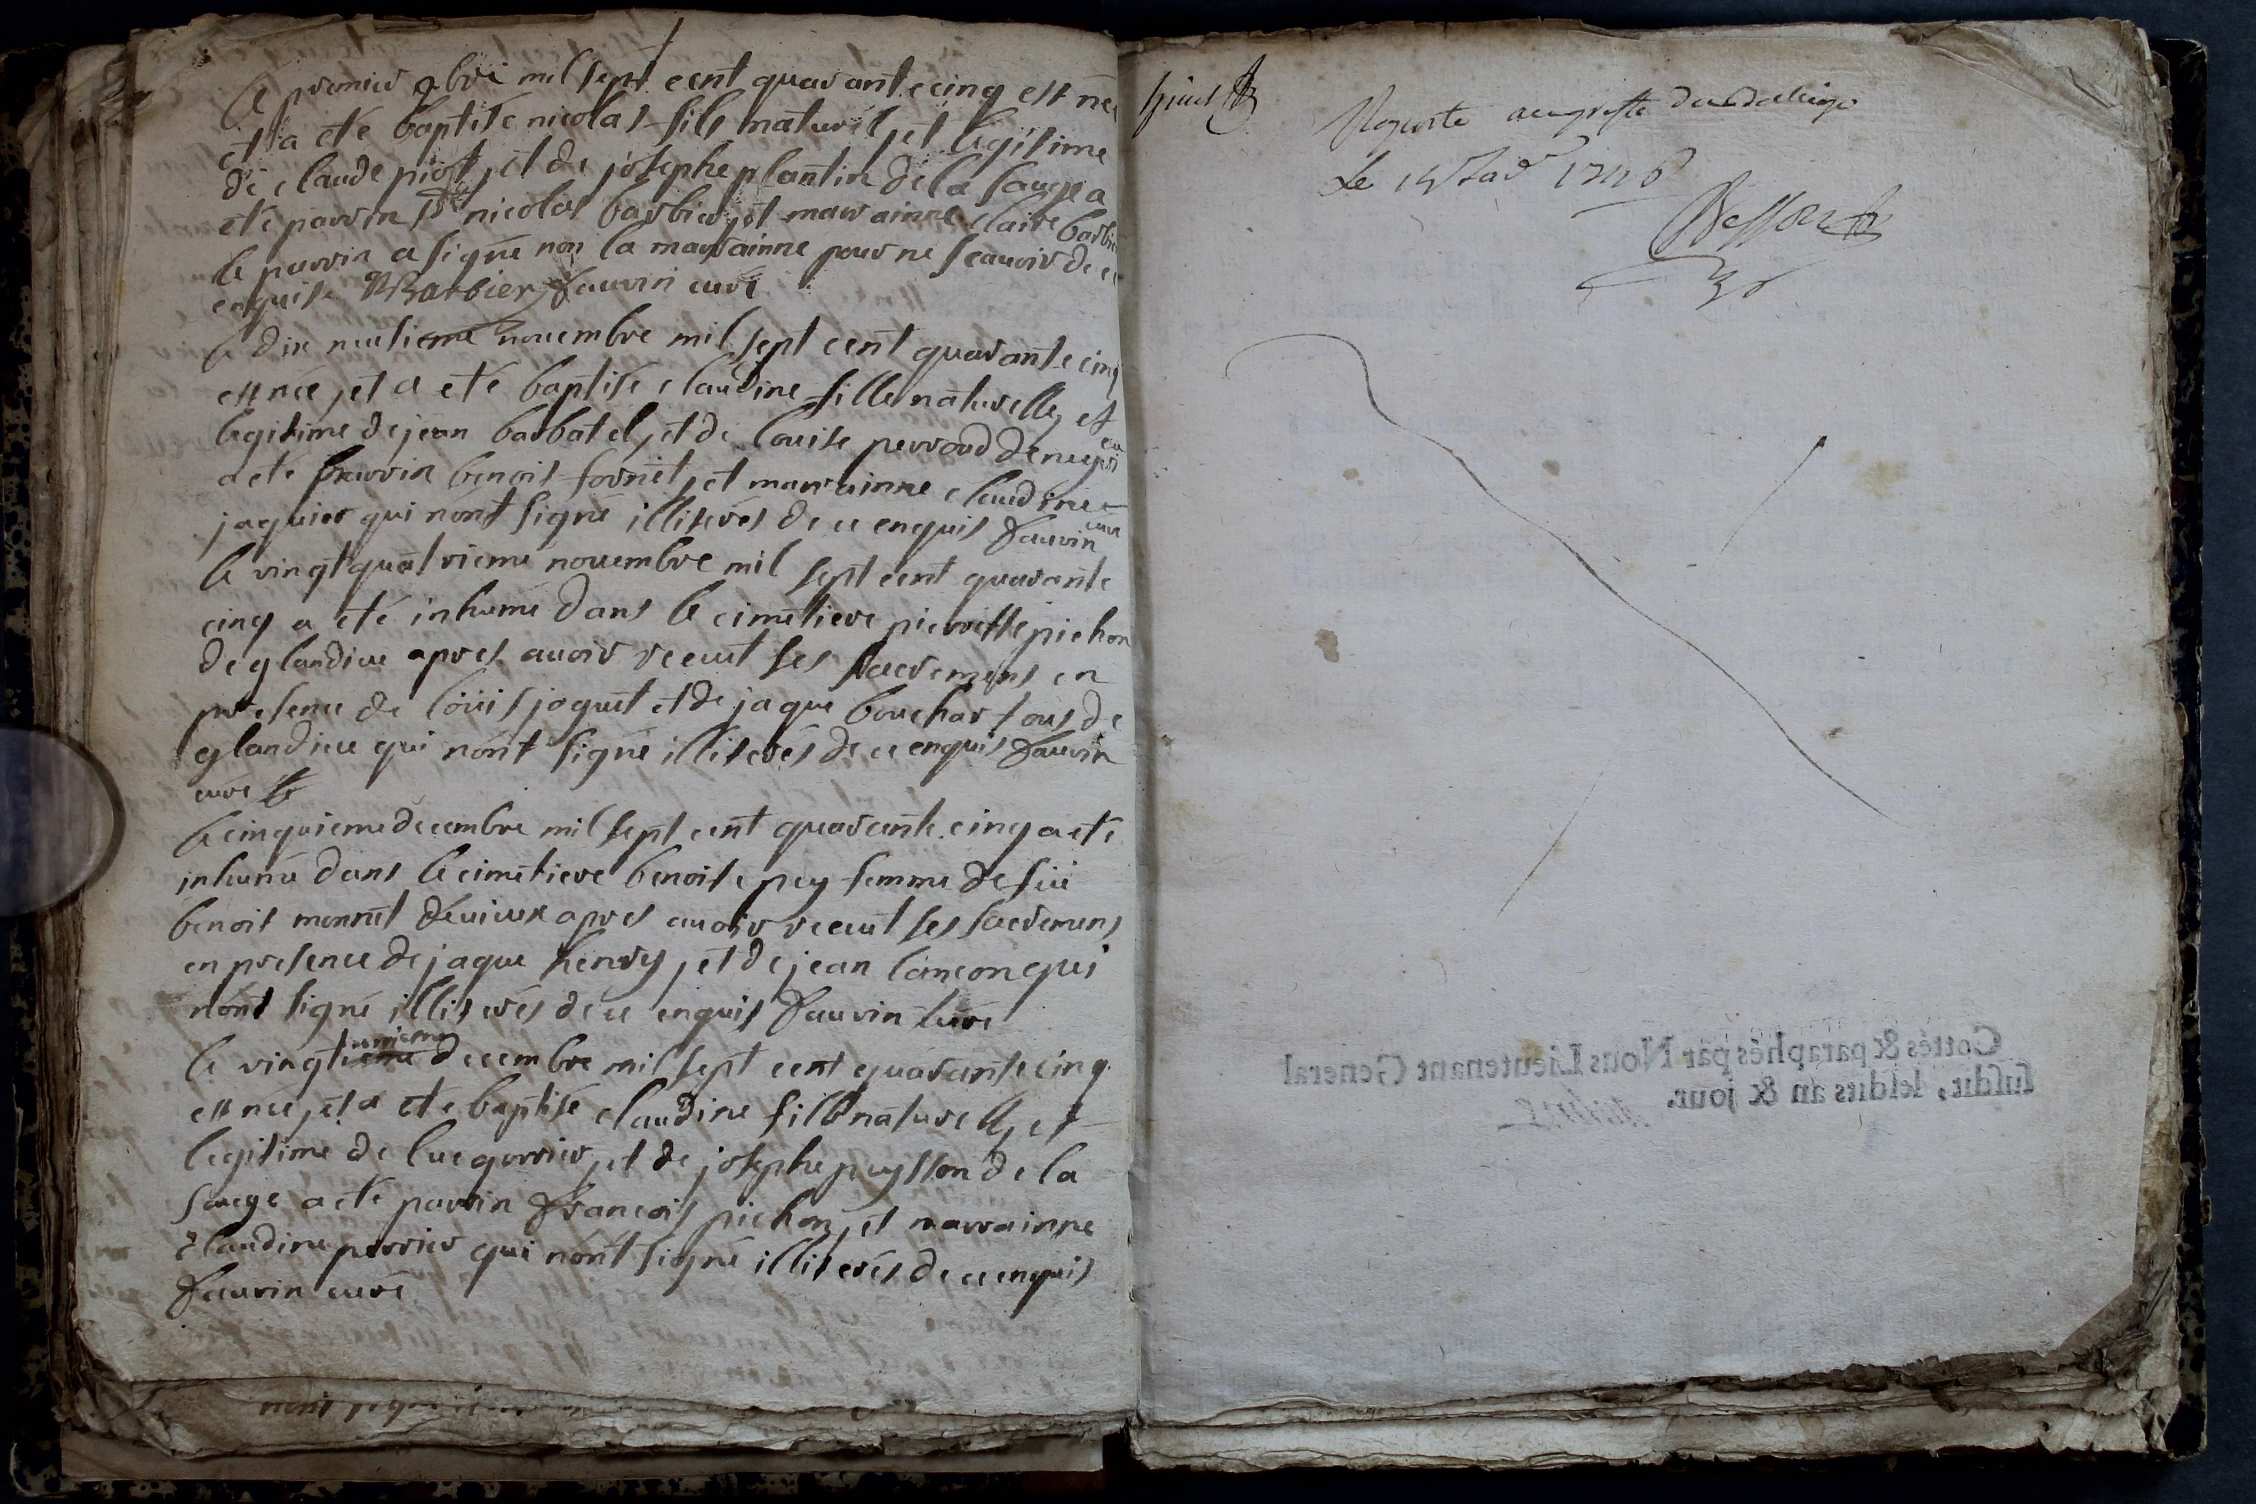 le premier 9bre mil sept cent quarante cinq est né
et a eté baptisé nicolas fils naturel, et legitime
de claude piot, et de josephe plantin de la sauge a
eté parrin sr nicolas barbier, et marrainne claire barbier
le parrin a signé non la marrainne pour ne scauoir de ce
enquise NBarbier fauvin curé
le dix neufieme nouembre mil sept cent quarante cinq
est née, et a eté baptisé claudine fille naturelle, et
legitime de jean barbatel, et de louise perroud
a eté parrin benoit fornet, et marrainne claudine
jaquier qui n'ont signé illiterés de ce enquis fauvin curé
le vingt quatrieme nouembre mil sept cent quarante
cinq a eté inhumé dans le cimetiere pierrette pichon
de glandieu apres auoir receut ses sacremens en
presence de loüis joguet et de jaque bouchar tous de
glandieu qui n'ont signé illiterés de ce enquis fauvin
curé
le cinquieme decembre mil sept cent quarante cinq a eté
inhumé dans le cimetiere benoite pey femme de feü
benoit monnet apres auoir receut ses sacremens
en presence de jaque henry, et de jean lancon qui
n'ont signé illiterés de ce enquis fauvin curé
le vingt unieme decembre mil sept cent quarante cinq
est née, et a eté baptisé claudine fille naturelle, et
legitime de luc perrier, et de josephe puysson de la
sauge a eté parrin francois pichon, et marrainne
claudine perrier qui n'ont signé illiterés de ce enquis
fauvin curé
n'ont signé
Le 15 Janr 1746
Besson
Cottés & paraphés par Nous Lieutenant General
susdit, lesdits an & jour.